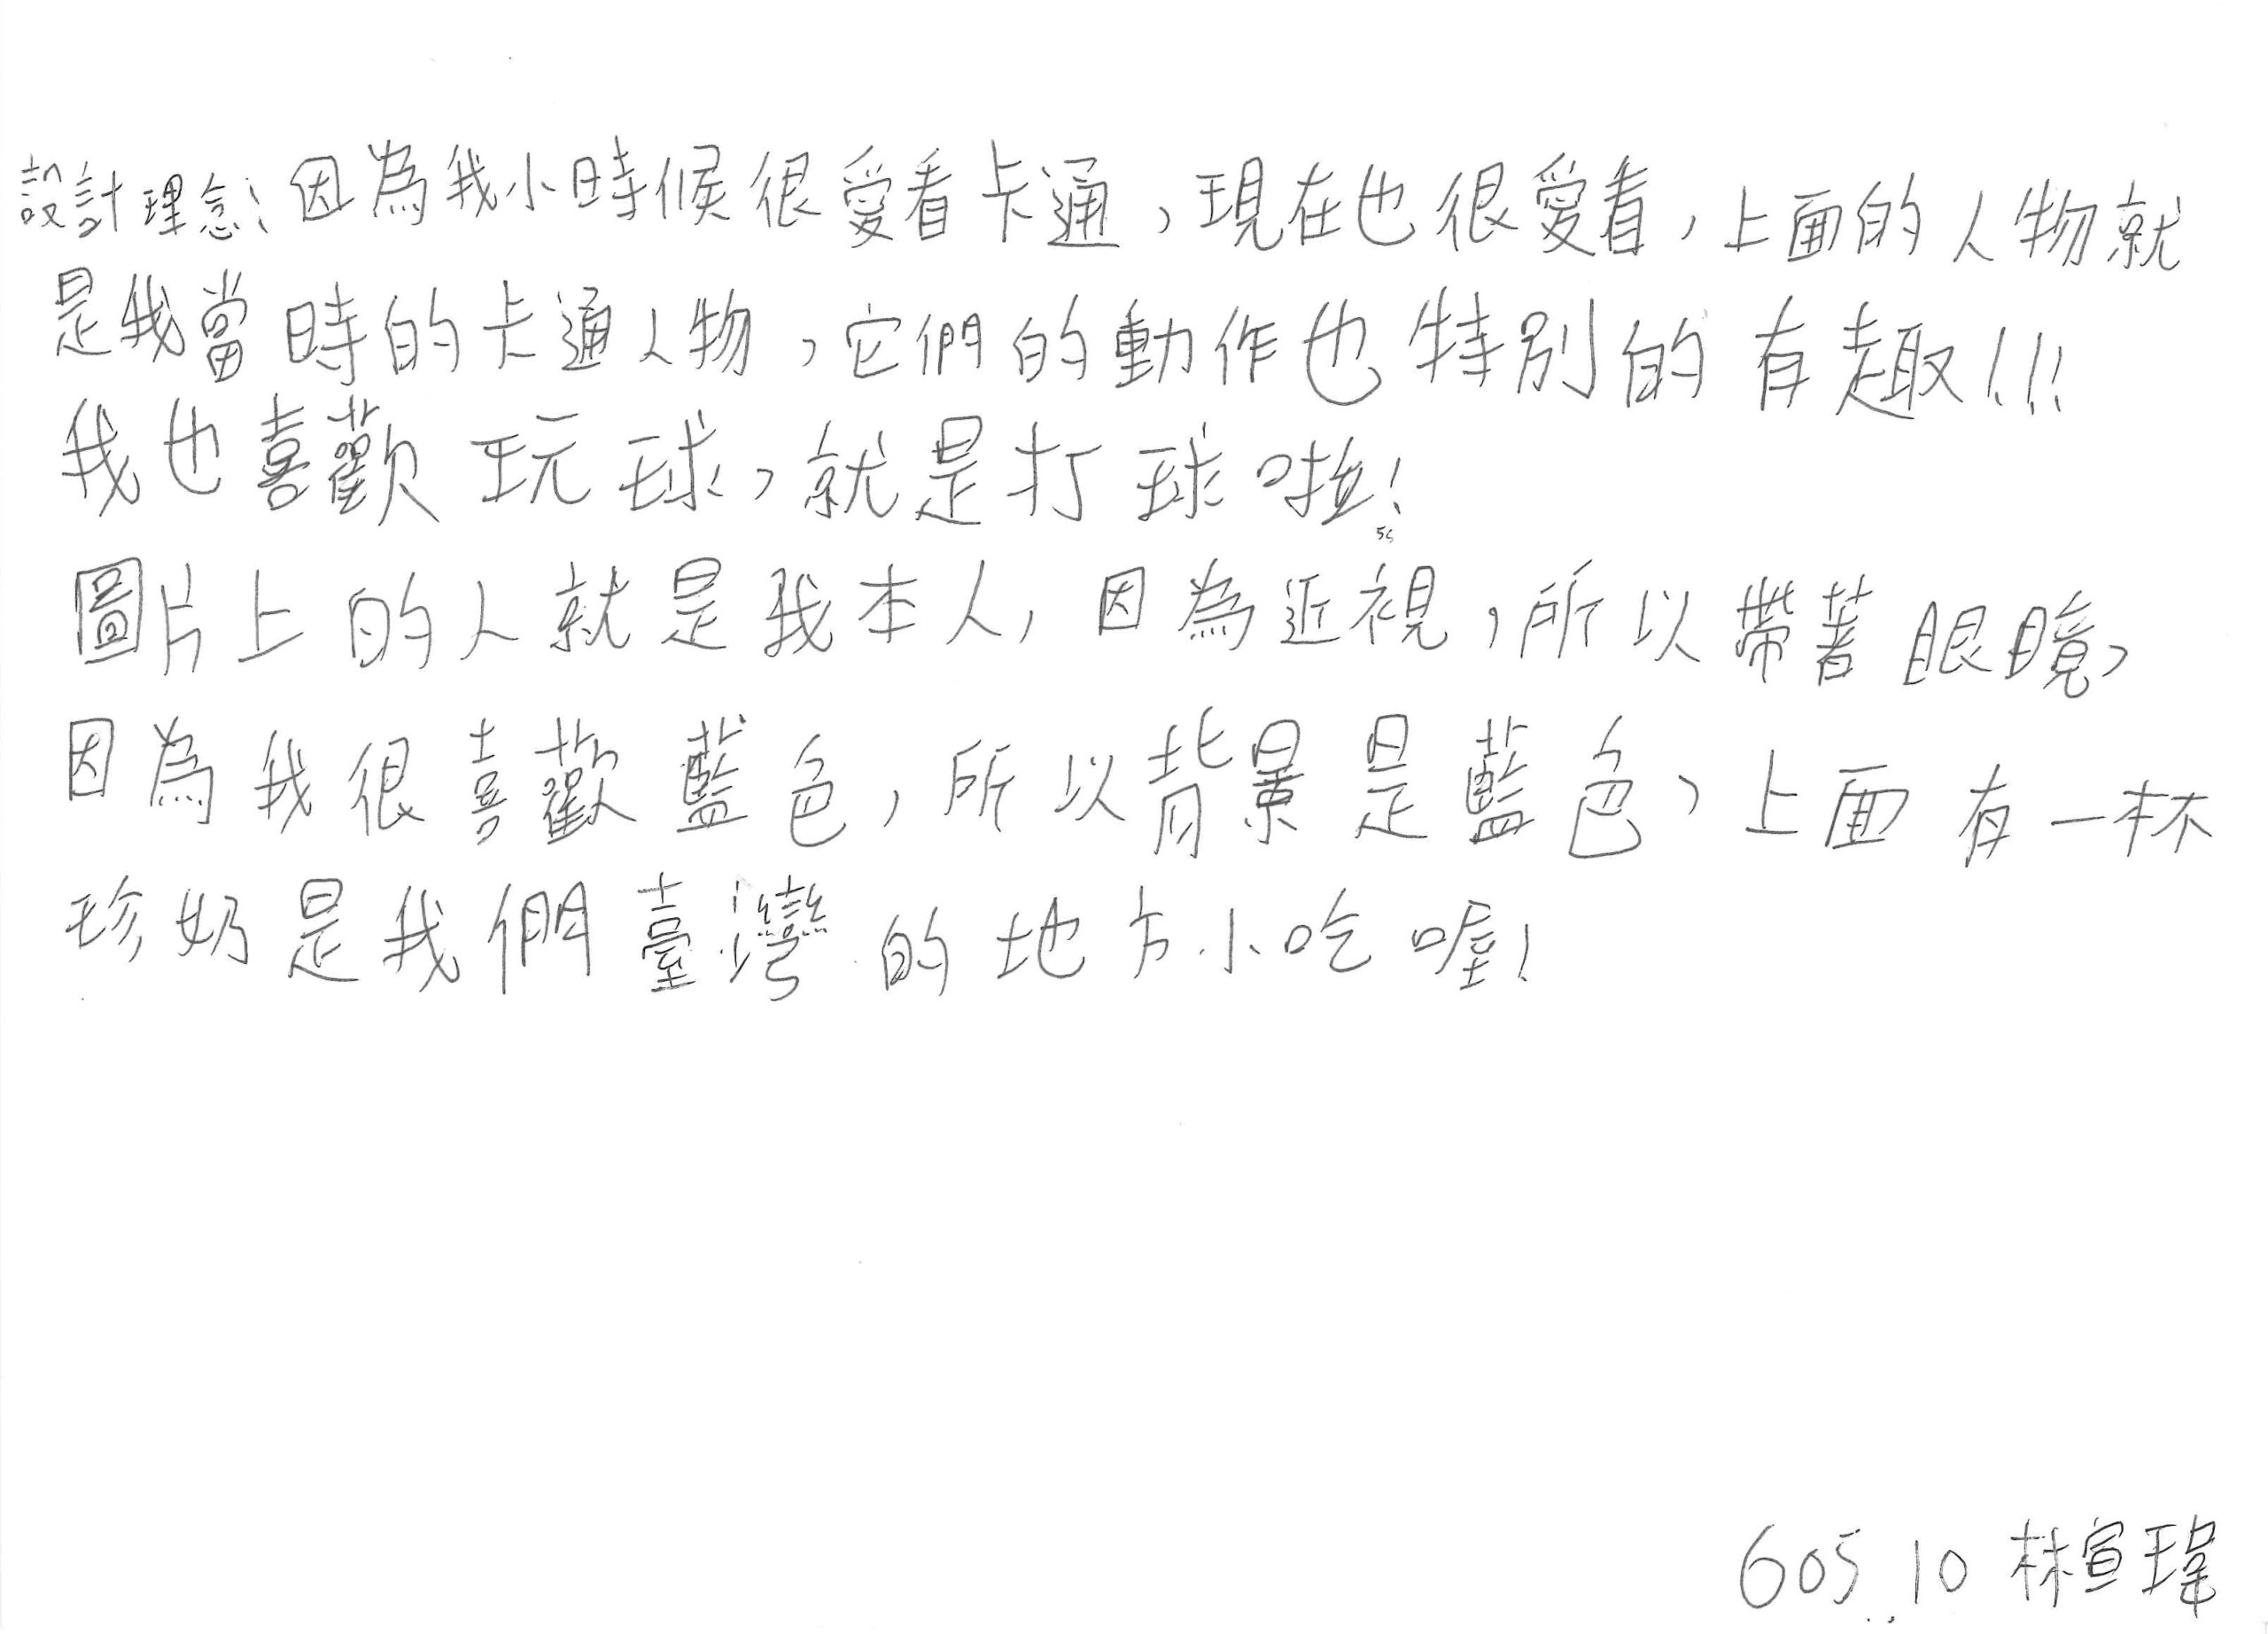 設計理念:因為我小時候很愛看卡通,現在也很愛看,上面的人物就
是我當時的卡通人物,它們的動作也特別的有趣!!!
我也喜歡玩球,就是打球啦!
圖片上的人就是我本人,因為近視,所以帶著眼鏡,
因為我很喜歡藍色,所以背景是藍色,上面有一杯
珍奶是我們臺灣的地方小吃喔!
605 10 林宣瑋